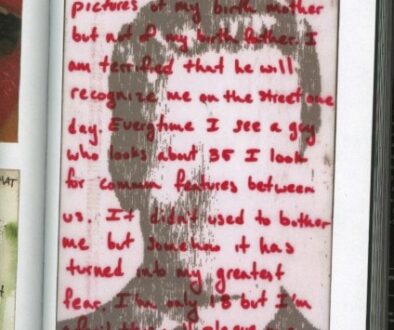 pictures of my birth mother
but not of my birth father. I
am terrified that he will
recognize me on the street one
day. Everytime I see a guy
who looks about 35 I look
for common features between
us. It didn't used to bother
me but somehow it has
turned into my greatest
fear. I'm only 18 but I'm